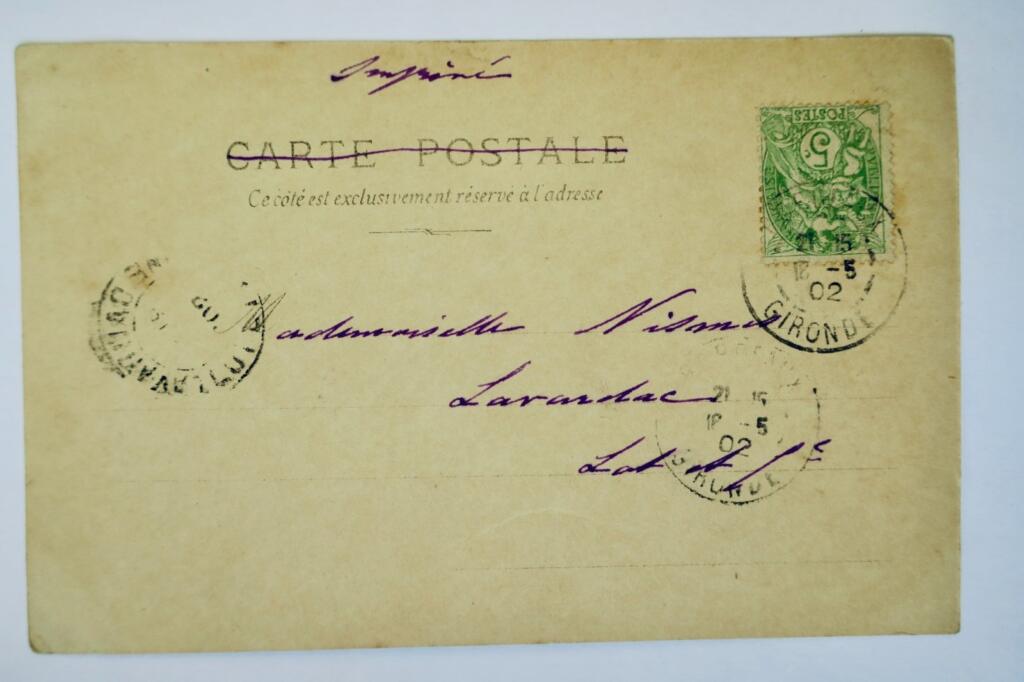 Imprimé
CARTE POSTALE
Ce côté est exclusivement réservé à l'adresse
POSTES
5
21 15
18 -5
02
GIRONDE
LAVARDAC
Mademoiselle Nismes
Lavardac
Lot et Gne
21 15
18 -5
02
GIRONDE